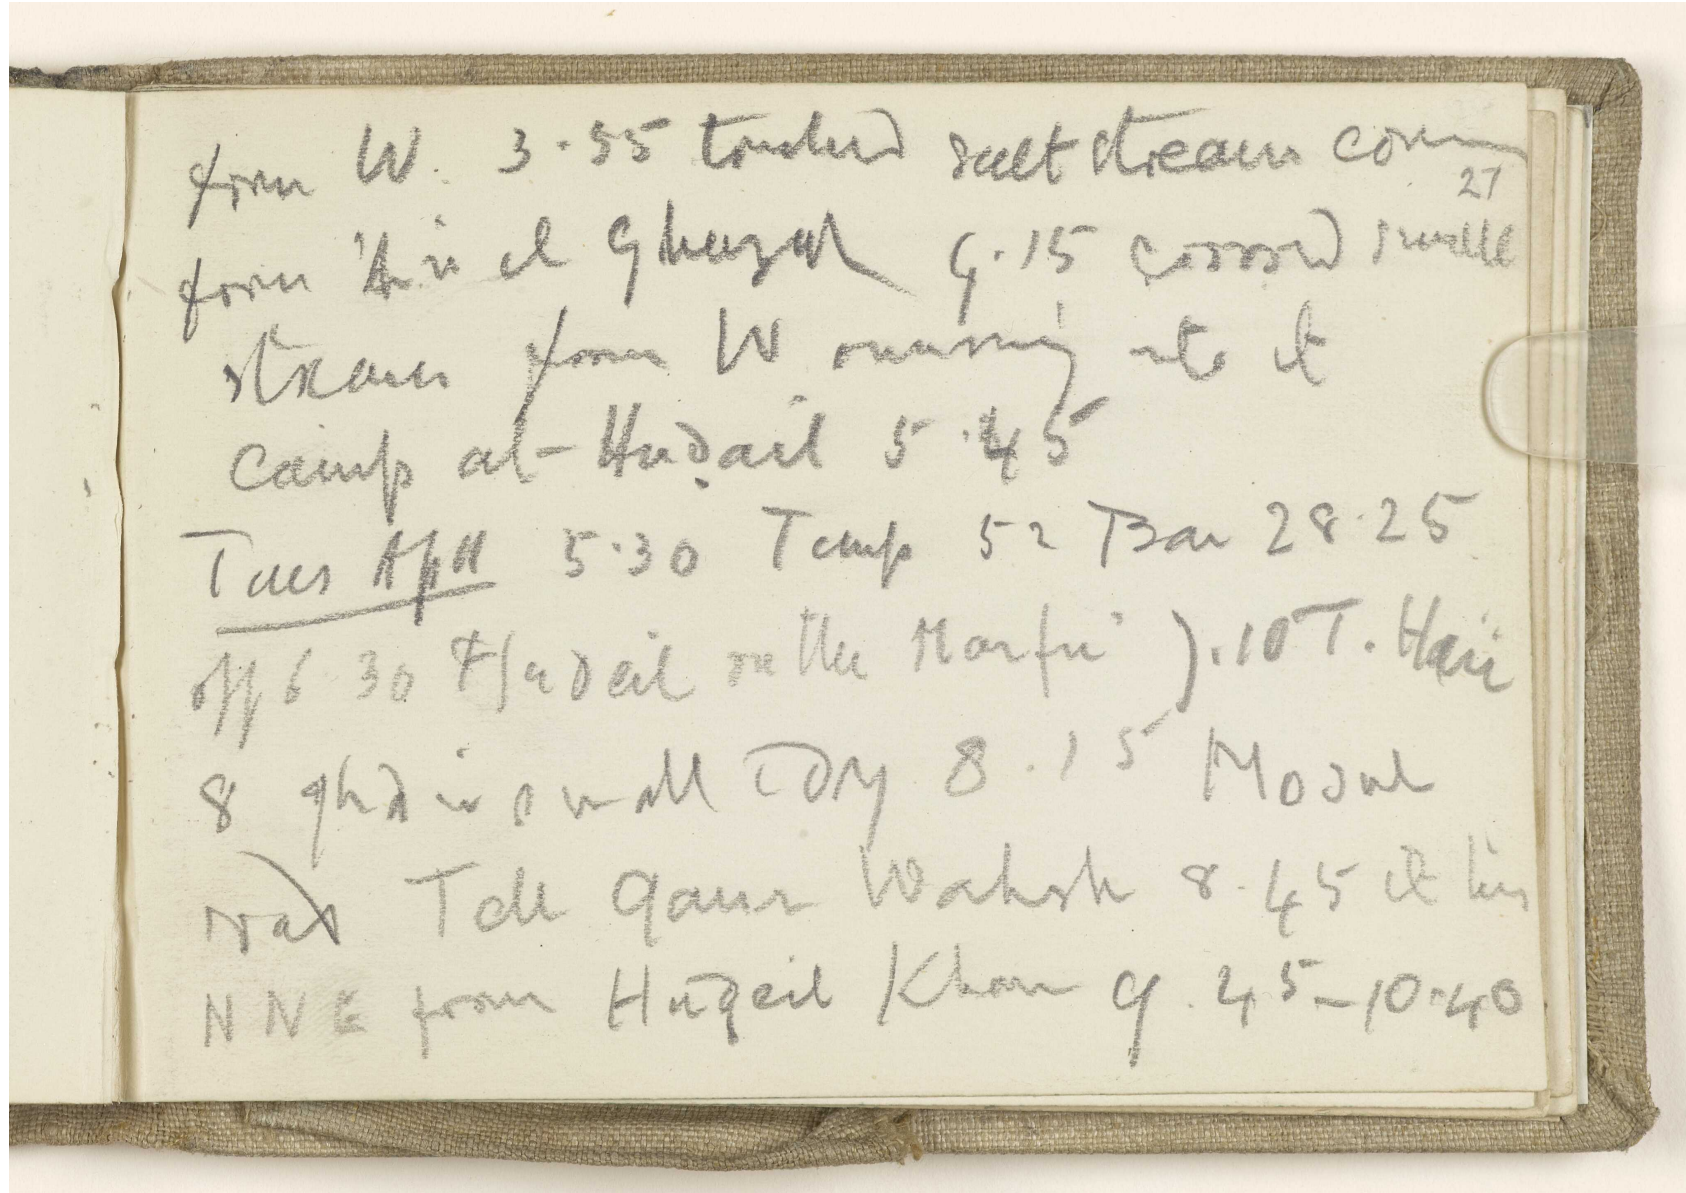 from W. 3.55 touched salt stream com
27
from 'Ain el Ghazal 4.15 crossed small
stream from W running into it
camp at Hudail 5.45
Tues Ap 11 5.30 Temp 52 Bar 28.25
off 6 30 Hudeil on the 7.10 T.
8 small Tory 8.15 Mosul
road Tell Wahsh 8.45 it lies
NNE from Hudeil Khan 9.45-10.40